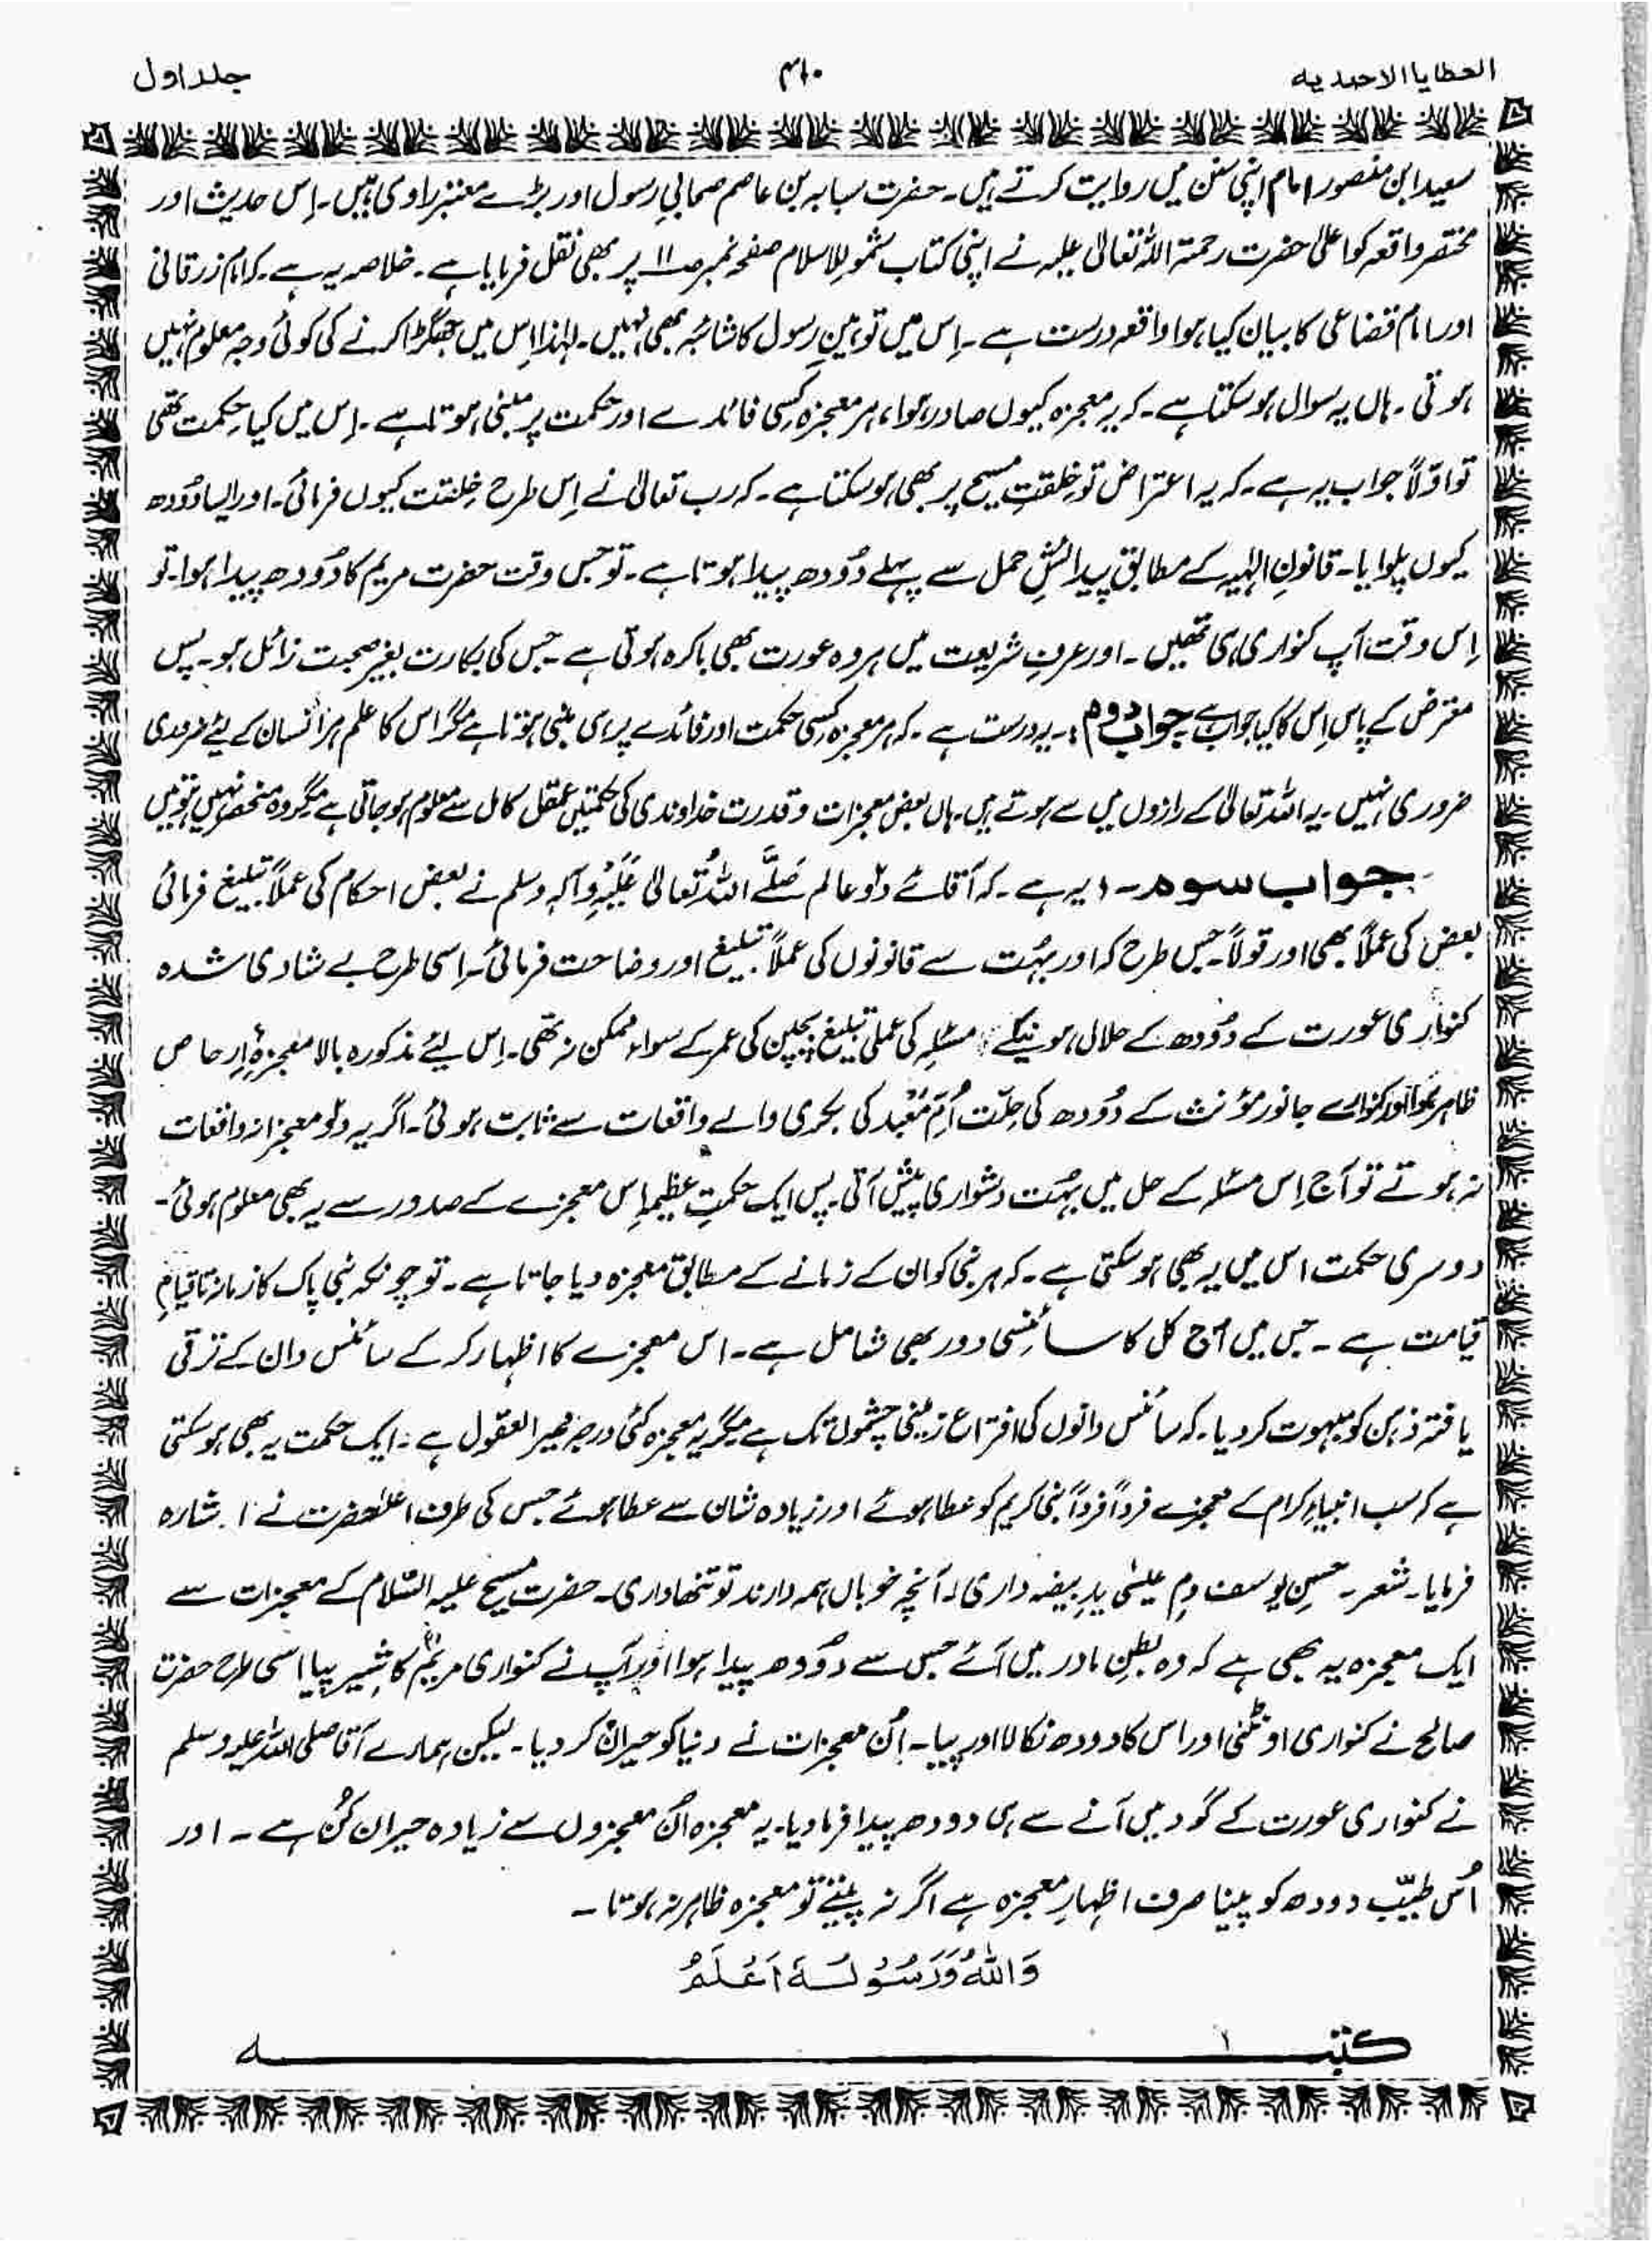 العطایا الاحمدیہ ۴۱۰ جلد اول
سعید ابن منصور امام اپنی سنن میں روایت کرتے ہیں۔ حضرت سبابہ بن عاصم صحابیِ رسول اور بڑے معتبر راوی ہیں۔ اِس حدیث اور
مختصر واقعہ کو اعلیٰ حضرت رحمۃ اللہ تعالیٰ علیہ نے اپنی کتاب شمولِ الاسلام صفحہ نمبر صـ۱۱ پر بھی نقل فرمایا ہے۔ خلاصہ یہ ہے۔ کہ امام زرقانی
اور امام قضاعی کا بیان کیا ہوا واقعہ درست ہے۔ اِس میں توہینِ رسول کا شائبہ بھی نہیں۔ لہٰذا اِس میں جھگڑا کرنے کی کوئی وجہ معلوم نہیں
ہوتی۔ ہاں یہ سوال ہو سکتا ہے۔ کہ یہ معجزہ کیوں صادر ہوا، ہر معجزہ کسی فائدے اور حکمت پر مبنی ہوتا ہے۔ اِس میں کیا حِکمت تھی
تو اوّلاً جواب یہ ہے۔ کہ یہ اعتراض تو خِلقتِ مسیح پر بھی ہو سکتا ہے۔ کہ رب تعالیٰ نے اِس طرح خِلقت کیوں فرمائی۔ اور ایسا دُودھ
کیوں پلوایا۔ قانونِ الٰہیہ کے مطابق پیدائشِ حمل سے پہلے دُودھ پیدا ہوتا ہے۔ تو جس وقت حضرت مریم کا دُودھ پیدا ہوا۔ تو
اِس وقت آپ کنواری ہی تھیں۔ اور عرفِ شریعت میں ہر وہ عورت بھی باکرہ ہوتی ہے۔ جس کی بکارت بغیر صحبت زائل ہو۔ پس
معترض کے پاس اِس کا کیا جواب ہے جواب دوم:۔ یہ درست ہے۔ کہ ہر معجزہ کسی حکمت اور فائدے پر ہی مبنی ہوتا ہے مگر اس کا علم ہر انسان کے لیئے ضروری
ضروری نہیں۔ یہ اللہ تعالیٰ کے رازوں میں سے ہوتے ہیں۔ ہاں بعض معجزات و قدرت خداوندی کی حکمتیں عقل کامل سے معلوم ہو جاتی ہے مگر وہ منحصر نہیں ہوتیں
جواب سوم۔ یہ ہے۔ کہ آقائے دو عالم صَلَّے اللہُ تعالیٰ عَلَیْہِ وآلہ وسلم نے بعض احکام کی عملاً تبلیغ فرمائی
بعض کی عملاً بھی اور قولاً۔ جس طرح کہ اور بہُت سے قانونوں کی عملاً تبلیغ اور وضاحت فرمائی۔ اِسی طرح بے شادی شدہ
کنواری عورت کے دُودھ کے حلال ہونیکے مسئلہ کی عملی تبلیغ بچپن کی عمر کے سواء ممکن نہ تھی۔ اِس لیئے مذکورہ بالا معجزہِٴ اِرحاص
ظاہر ہوا اور کنوارے جانور مؤنث کے دُودھ کی حِلّت اُمِّ مَعْبد کی بکری والے واقعات سے ثابت ہوئی۔ اگر یہ دو معجزانہ واقعات
نہ ہوتے تو آج اِس مسئلہ کے حل میں بہُت دشواری پیش آتی۔ پس ایک حکمتِ عظیم اِس معجزے کے صدور سے یہ بھی معلوم ہوئی۔
دوسری حکمت اس میں یہ بھی ہو سکتی ہے۔ کہ ہر نبی کو ان کے زمانے کے مطابق معجزہ دیا جاتا ہے۔ تو چونکہ نبی پاک کا زمانہ تا قیامِ
قیامت ہے۔ جس میں آج کل کا سائنسی دور بھی شامل ہے۔ اس معجزے کا اظہار کر کے سائنس دان کے ترقی
یافتہ ذہن کو مبہوت کر دیا۔ کہ سائنس دانوں کی اختراع زمینی چشموں تک ہے مگر یہ معجزہ کئی درجہ محیر العقول ہے۔ ایک حکمت یہ بھی ہو سکتی
ہے کہ سب انبیاءِ کرام کے معجزے فرداً فرداً نبی کریم کو عطا ہوئے اور زیادہ شان سے عطا ہوئے جس کی طرف اعلیٰحضرت نے اشارہ
فرمایا۔ شعر۔ حسنِ یوسف دمِ عیسٰی یدِ بیضہ داری۔ آنچہ خوباں ہمہ دارند تو تنہا داری۔ حضرت مسیح علیہ السّلام کے معجزات سے
ایک معجزہ یہ بھی ہے کہ وہ بطنِ مادر میں آئے جس سے دُودھ پیدا ہوا اور آپ نے کنواری مریم کا شِیر پیا اسی طرح حضرت
صالح نے کنواری اونٹنی اور اس کا دودھ نکالا اور پیا۔ اُن معجزات نے دنیا کو حیران کر دیا۔ لیکن ہمارے آقا صلی اللہ علیہ وسلم
نے کنواری عورت کے گود میں آنے سے ہی دودھ پیدا فرما دیا۔ یہ معجزہ اُن معجزوں سے زیادہ حیران کُن ہے۔ اور
اُس طیّب دودھ کو پینا صرف اظہارِ معجزہ ہے اگر نہ پیتے تو معجزہ ظاہر نہ ہوتا۔
وَاللہُ وَرَسُوْلُہٗ اَعْلَمُ
کتبہ